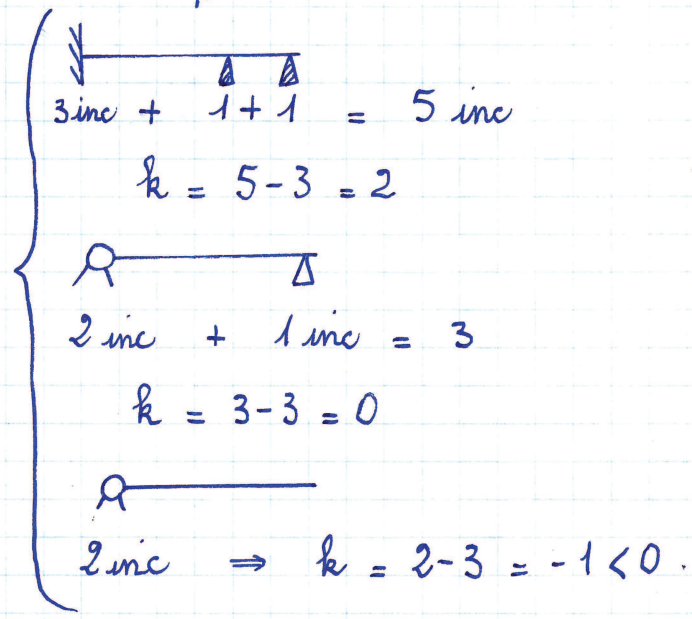 3 inc + 1 + 1 = 5 inc
k = 5 - 3 = 2
2 inc + 1 inc = 3
k = 3 - 3 = 0
2 inc ⇒ k = 2 - 3 = -1 < 0.